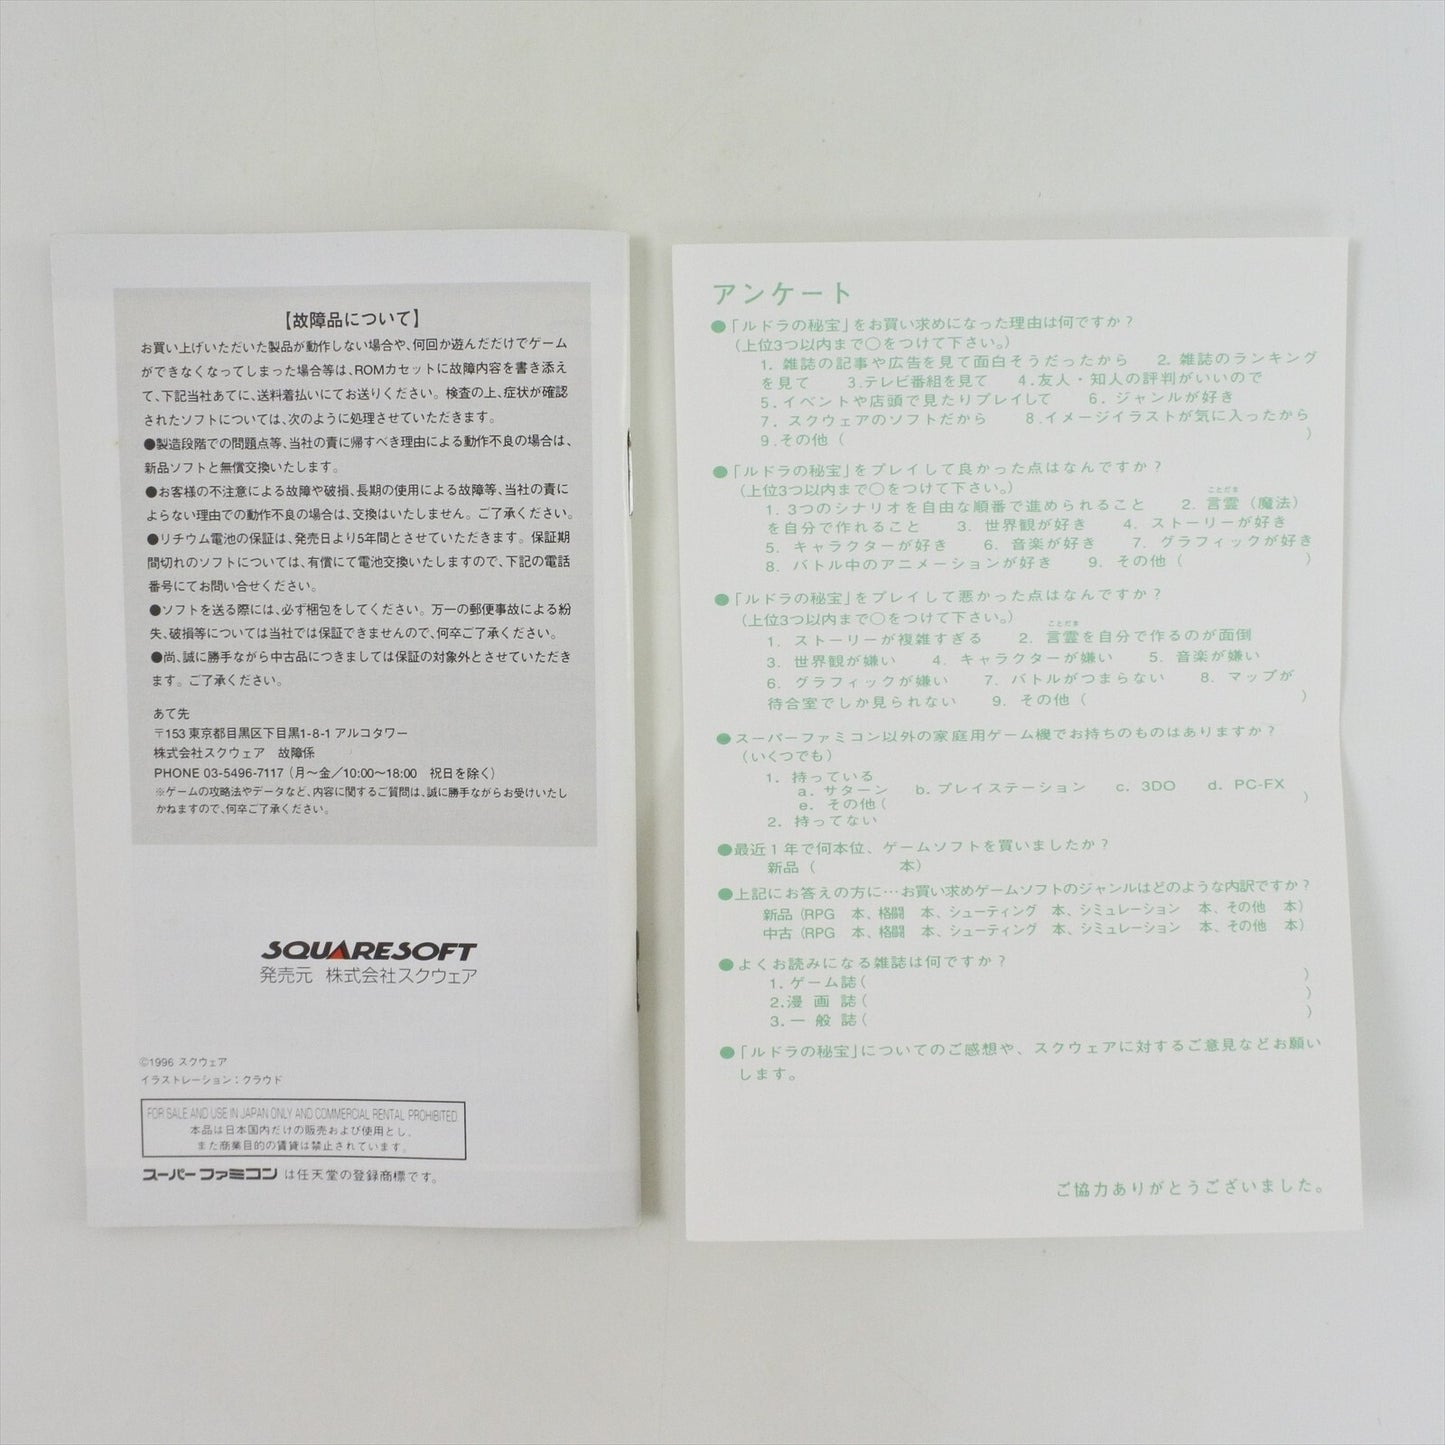 【故障品について】
お買い上げいただいた製品が動作しない場合や、何回か遊んだだけでゲーム
ができなくなってしまった場合等は、ROMカセットに故障内容を書き添え
て、下記当社あてに、送料着払いにてお送りください。検査の上、症状が確認
されたソフトについては、次のように処理させていただきます。
●製造段階での問題点等、当社の責に帰すべき理由による動作不良の場合は、
新品ソフトと無償交換いたします。
●お客様の不注意による故障や破損、長期の使用による故障等、当社の責に
よらない理由での動作不良の場合は、交換はいたしません。ご了承ください。
●リチウム電池の保証は、発売日より5年間とさせていただきます。保証期
間切れのソフトについては、有償にて電池交換いたしますので、下記の電話
番号にてお問い合せください。
●ソフトを送る際には、必ず梱包をしてください。万一の郵便事故による紛
失、破損等については当社では保証できませんので、何卒ご了承ください。
●尚、誠に勝手ながら中古品につきましては保証の対象外とさせていただき
ます。ご了承ください。
あて先
〒153 東京都目黒区下目黒1-8-1 アルコタワー
株式会社スクウェア 故障係
PHONE 03-5496-7117 (月〜金／10:00〜18:00 祝日を除く)
※ゲームの攻略法やデータなど、内容に関するご質問は、誠に勝手ながらお受けいたし
かねますので、何卒ご了承ください。
SQUARESOFT
発売元 株式会社スクウェア
©1996 スクウェア
イラストレーション：クラウド
FOR SALE AND USE IN JAPAN ONLY AND COMMERCIAL RENTAL PROHIBITED.
本品は日本国内だけの販売および使用とし、
また商業目的の賃貸は禁止されています。
スーパーファミコン は任天堂の登録商標です。
アンケート
●「ルドラの秘宝」をお買い求めになった理由は何ですか？
(上位3つ以内まで○をつけて下さい。)
1. 雑誌の記事や広告を見て面白そうだったから 2. 雑誌のランキング
を見て 3.テレビ番組を見て 4.友人・知人の評判がいいので
5.イベントや店頭で見たりプレイして 6. ジャンルが好き
7. スクウェアのソフトだから 8.イメージイラストが気に入ったから
9.その他 ( )
●「ルドラの秘宝」をプレイして良かった点はなんですか？
(上位3つ以内まで○をつけて下さい。) ことだま
1. 3つのシナリオを自由な順番で進められること 2. 言霊 (魔法)
を自分で作れること 3. 世界観が好き 4. ストーリーが好き
5. キャラクターが好き 6. 音楽が好き 7. グラフィックが好き
8. バトル中のアニメーションが好き 9. その他 ( )
●「ルドラの秘宝」をプレイして悪かった点はなんですか？
(上位3つ以内まで○をつけて下さい。) ことだま
1. ストーリーが複雑すぎる 2. 言霊を自分で作るのが面倒
3. 世界観が嫌い 4. キャラクターが嫌い 5. 音楽が嫌い
6. グラフィックが嫌い 7. バトルがつまらない 8. マップが
待合室でしか見られない 9. その他 ( )
●スーパーファミコン以外の家庭用ゲーム機でお持ちのものはありますか？
(いくつでも)
1. 持っている
a. サターン b. プレイステーション c. 3DO d. PC-FX
e. その他 ( )
2. 持ってない
●最近１年で何本位、ゲームソフトを買いましたか？
新品 ( 本)
●上記にお答えの方に…お買い求めゲームソフトのジャンルはどのような内訳ですか？
新品 (RPG 本、格闘 本、シューティング 本、シミュレーション 本、その他 本)
中古 (RPG 本、格闘 本、シューティング 本、シミュレーション 本、その他 本)
●よくお読みになる雑誌は何ですか？
1. ゲーム誌 ( )
2.漫 画 誌 ( )
3. 一 般 誌 ( )
●「ルドラの秘宝」についてのご感想や、スクウェアに対するご意見などお願い
します。
ご協力ありがとうございました。